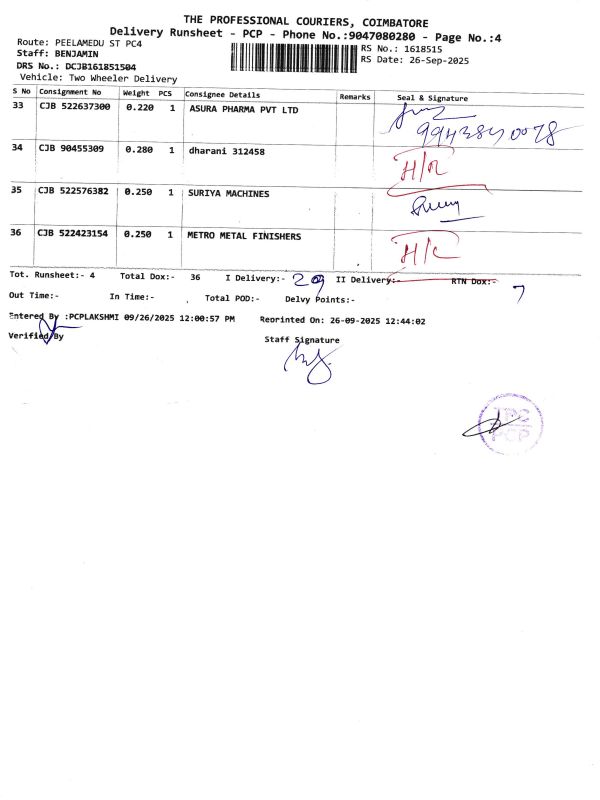 THE PROFESSIONAL COURIERS, COIMBATORE
Delivery Runsheet - PCP - Phone No.:9047080280 - Page No.:4
Route: PEELAMEDU ST PC4
RS No.: 1618515
Staff: BENJAMIN
RS Date: 26-Sep-2025
DRS No.: DCJB161851504
Vehicle: Two Wheeler Delivery
S No Consignment No Weight PCS Consignee Details Remarks Seal & Signature
33 CJB 522637300 0.220 1 ASURA PHARMA PVT LTD
34 CJB 90455309 0.280 1 dharani 312458 H/R
35 CJB 522576382 0.250 1 SURIYA MACHINES
36 CJB 522423154 0.250 1 METRO METAL FINISHERS H/C
Tot. Runsheet:- 4 Total Dox:- 36 I Delivery:- 29 II Delivery:- RTN Dox:- 7
Out Time:- In Time:- Total POD:- Delvy Points:-
Entered By :PCPLAKSHMI 09/26/2025 12:00:57 PM Reorinted On: 26-09-2025 12:44:02
Verified By Staff Signature
TPC
PCP